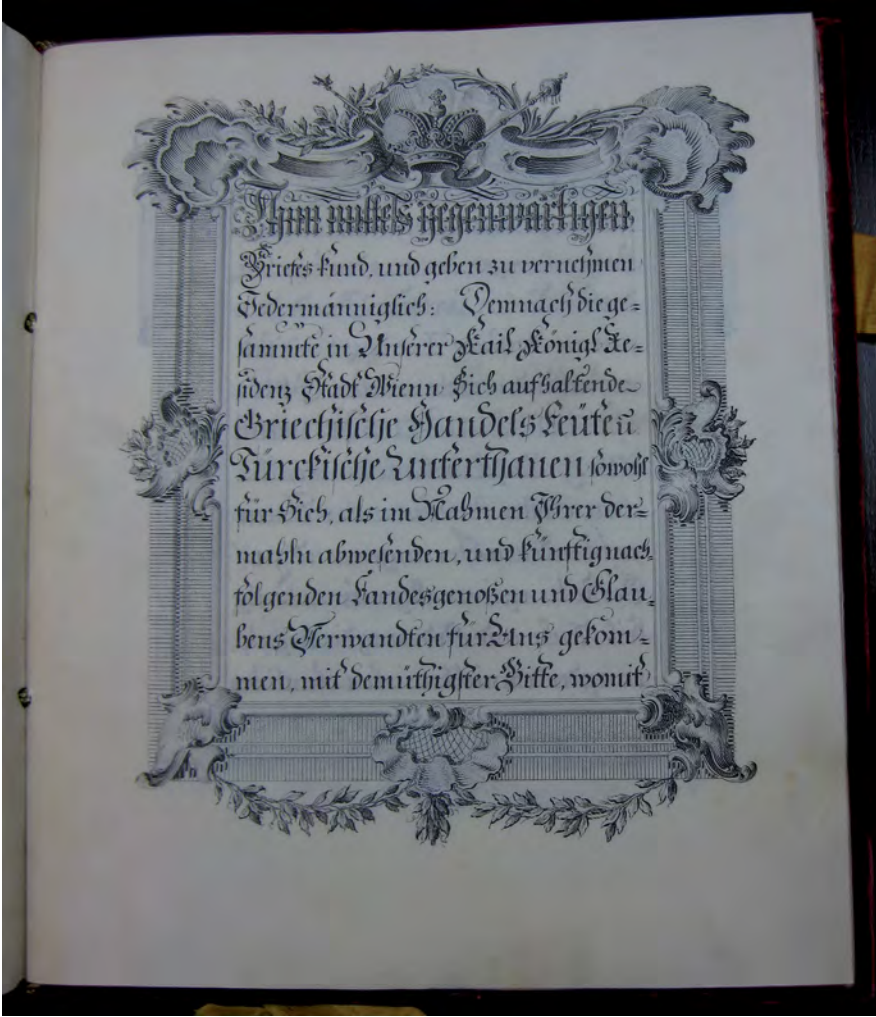 Thun mittels gegenwärtigen
Briefes kund, und geben zu vernehmen
Jedermänniglich: Demnach die ge=
sammte in Unserer Kail. Königl. Re=
sidenz Stadt Wienn Sich aufhaltende
Griechische Handels Leüte ū
Türckische Unterthanen sowohl
für Sich, als im Nahmen Ihrer der=
mahln abwesenden, und künftig nach=
folgenden Landesgenoßen und Glau=
bens Verwandten für Uns gekom=
men, mit demüthigster Bitte, womit